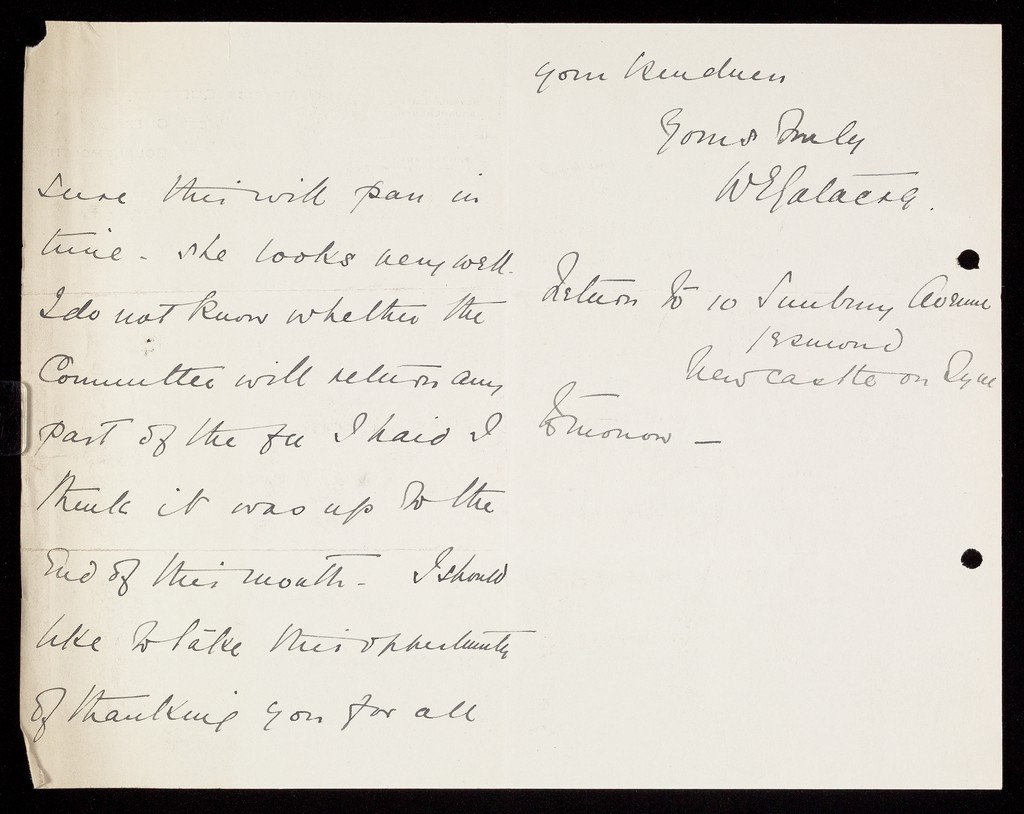 sure this will pass in
time - she looks very well.
I do not know whether the
Committee will return any
part of the fee I paid I
think it was up to the
End of this month - I should
like to take this opportunity
of thanking you for all
your kindness
Yours truly
W E
I return to 10 Sunbury Avenue
Jesmond
Newcastle on Tyne
tomorrow -